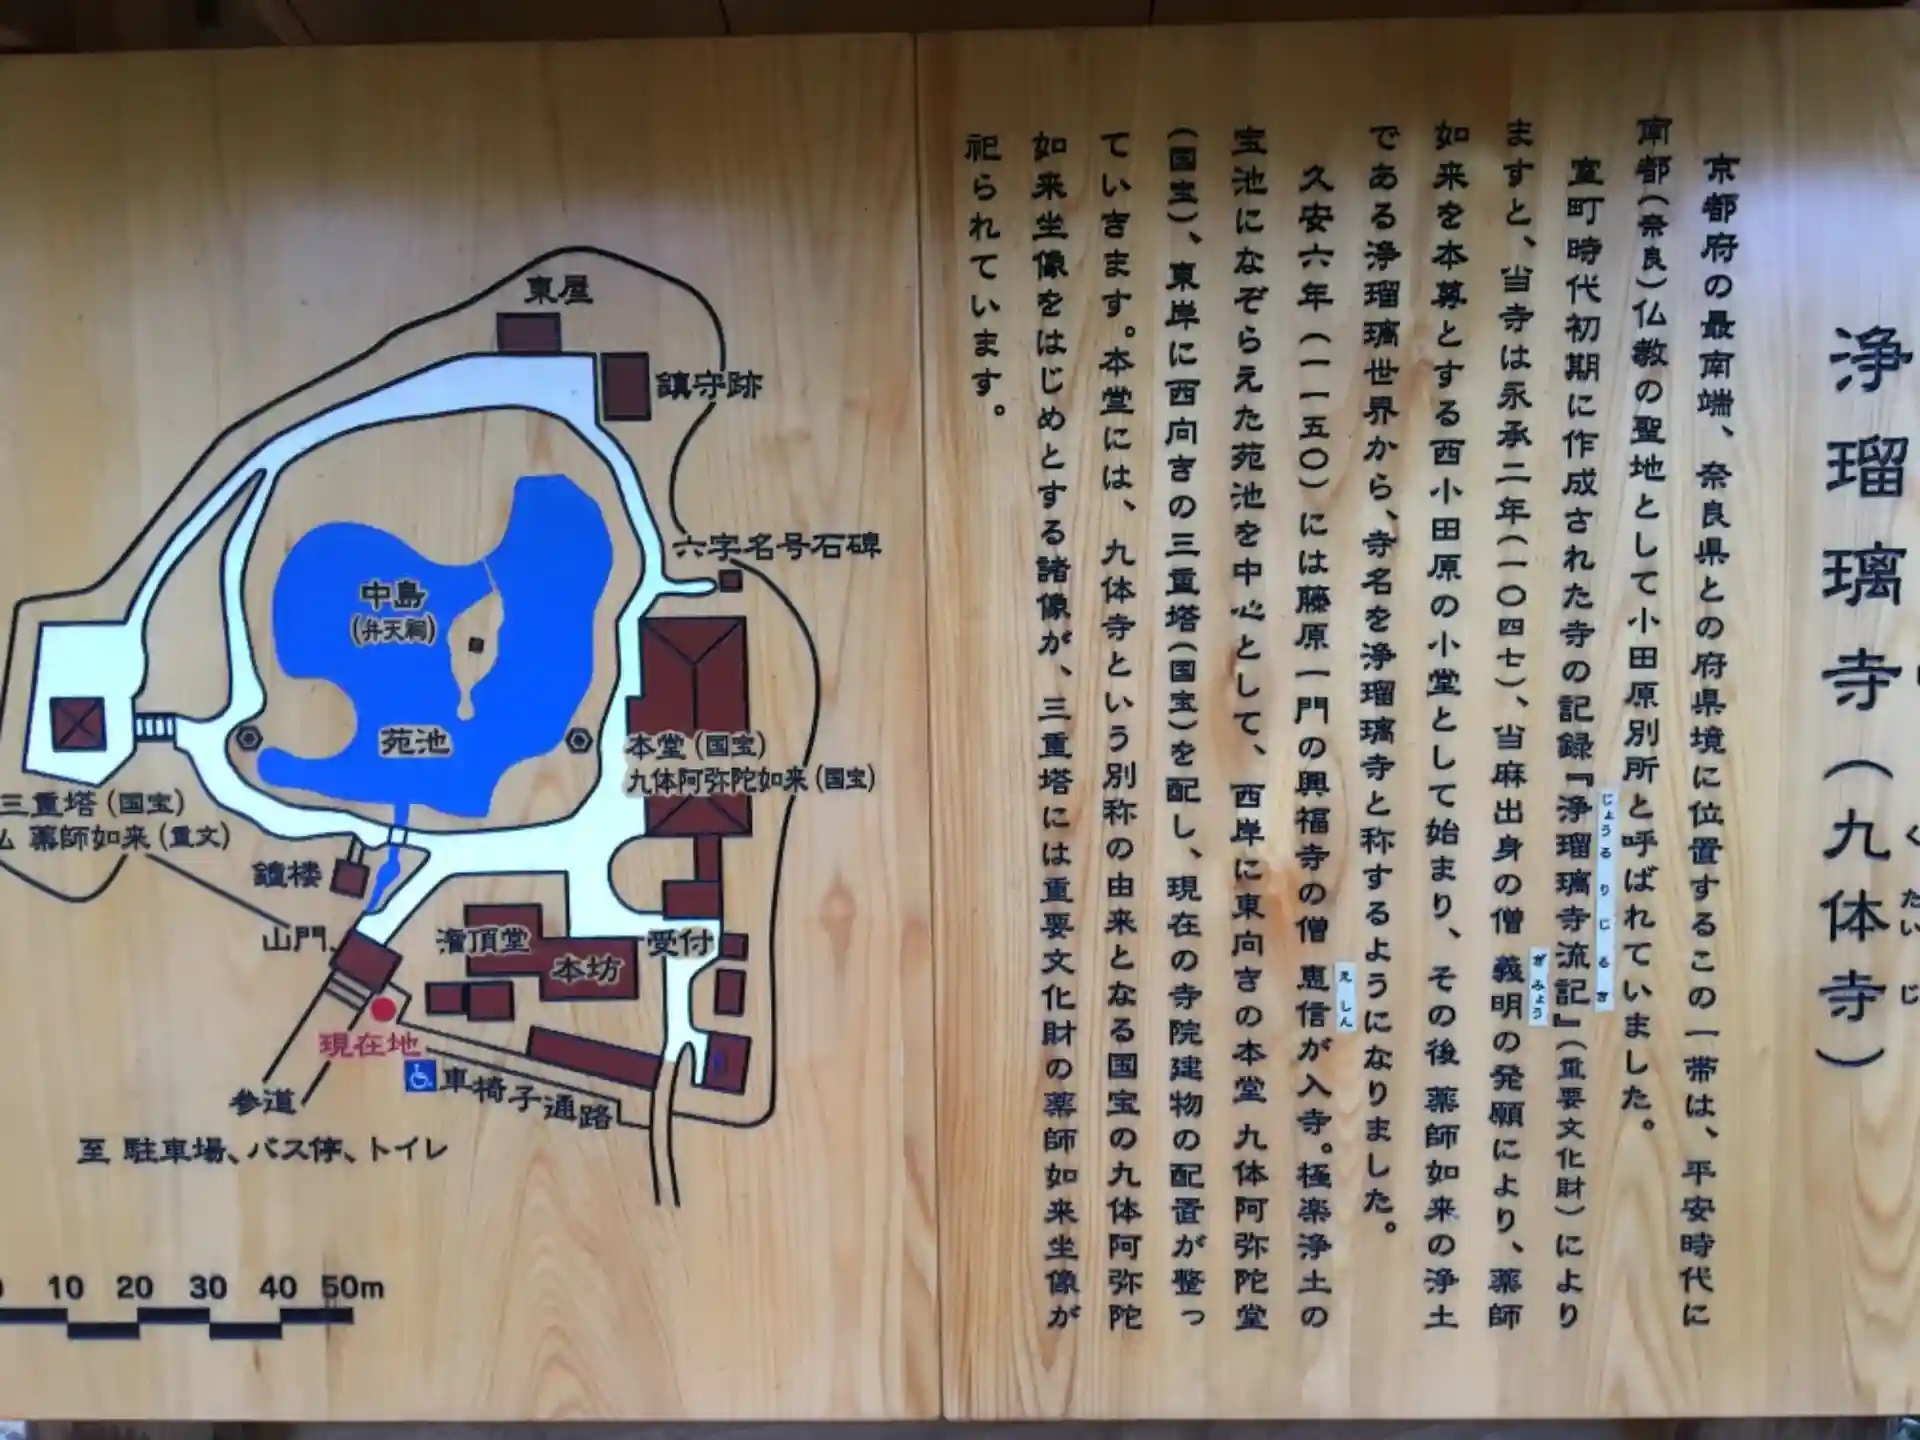 浄瑠璃寺（九体寺）
く たい じ
京都府の最南端、奈良県との府県境に位置するこの一帯は、平安時代に
南都（奈良）仏教の聖地として小田原別所と呼ばれていました。
室町時代初期に作成された寺の記録『浄瑠璃寺流記』（重要文化財）により
じょうるりじるき
ますと、当寺は永承二年（一〇四七）、当麻出身の僧 義明の発願により、薬師
ぎみょう
如来を本尊とする西小田原の小堂として始まり、その後 薬師如来の浄土
である浄瑠璃世界から、寺名を浄瑠璃寺と称するようになりました。
久安六年（一一五〇）には藤原一門の興福寺の僧 恵信が入寺。極楽浄土の
えしん
宝池になぞらえた苑池を中心として、西岸に東向きの本堂 九体阿弥陀堂
（国宝）、東岸に西向きの三重塔（国宝）を配し、現在の寺院建物の配置が整っ
ていきます。本堂には、九体寺という別称の由来となる国宝の九体阿弥陀
如来坐像をはじめとする諸像が、三重塔には重要文化財の薬師如来坐像が
祀られています。
東屋
鎮守跡
六字名号石碑
中島
（弁天祠）
苑池
本堂（国宝）
九体阿弥陀如来（国宝）
三重塔（国宝）
仏 薬師如来（重文）
鐘楼
山門
潅頂堂
本坊
受付
現在地
車椅子通路
参道
至 駐車場、バス停、トイレ
0 10 20 30 40 50m